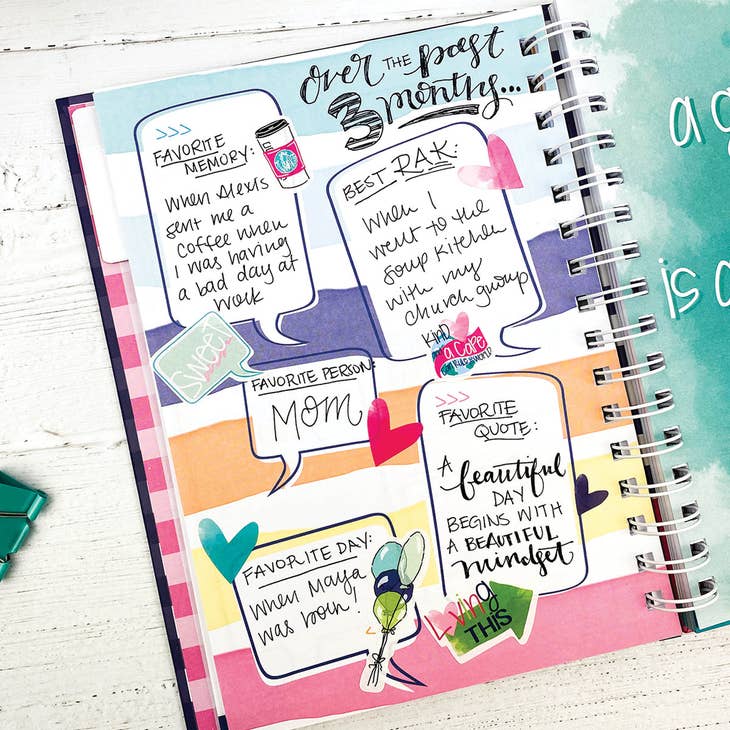 over THE past
3 months...
>>>
FAVORITE
MEMORY:
When Alexis
sent me a
coffee when
I was having
a bad day at
work
BEST RAK:
When I
went to the
soup kitchen
with my
church group
SWEET
KIND
a care
FAVORITE PERSON:
MOM
>>>
FAVORITE
QUOTE:
A beautiful
DAY
BEGINS WITH
A BEAUTIFUL
mindset
FAVORITE DAY:
When Maya
was born!
Loving
THIS
a g
is a